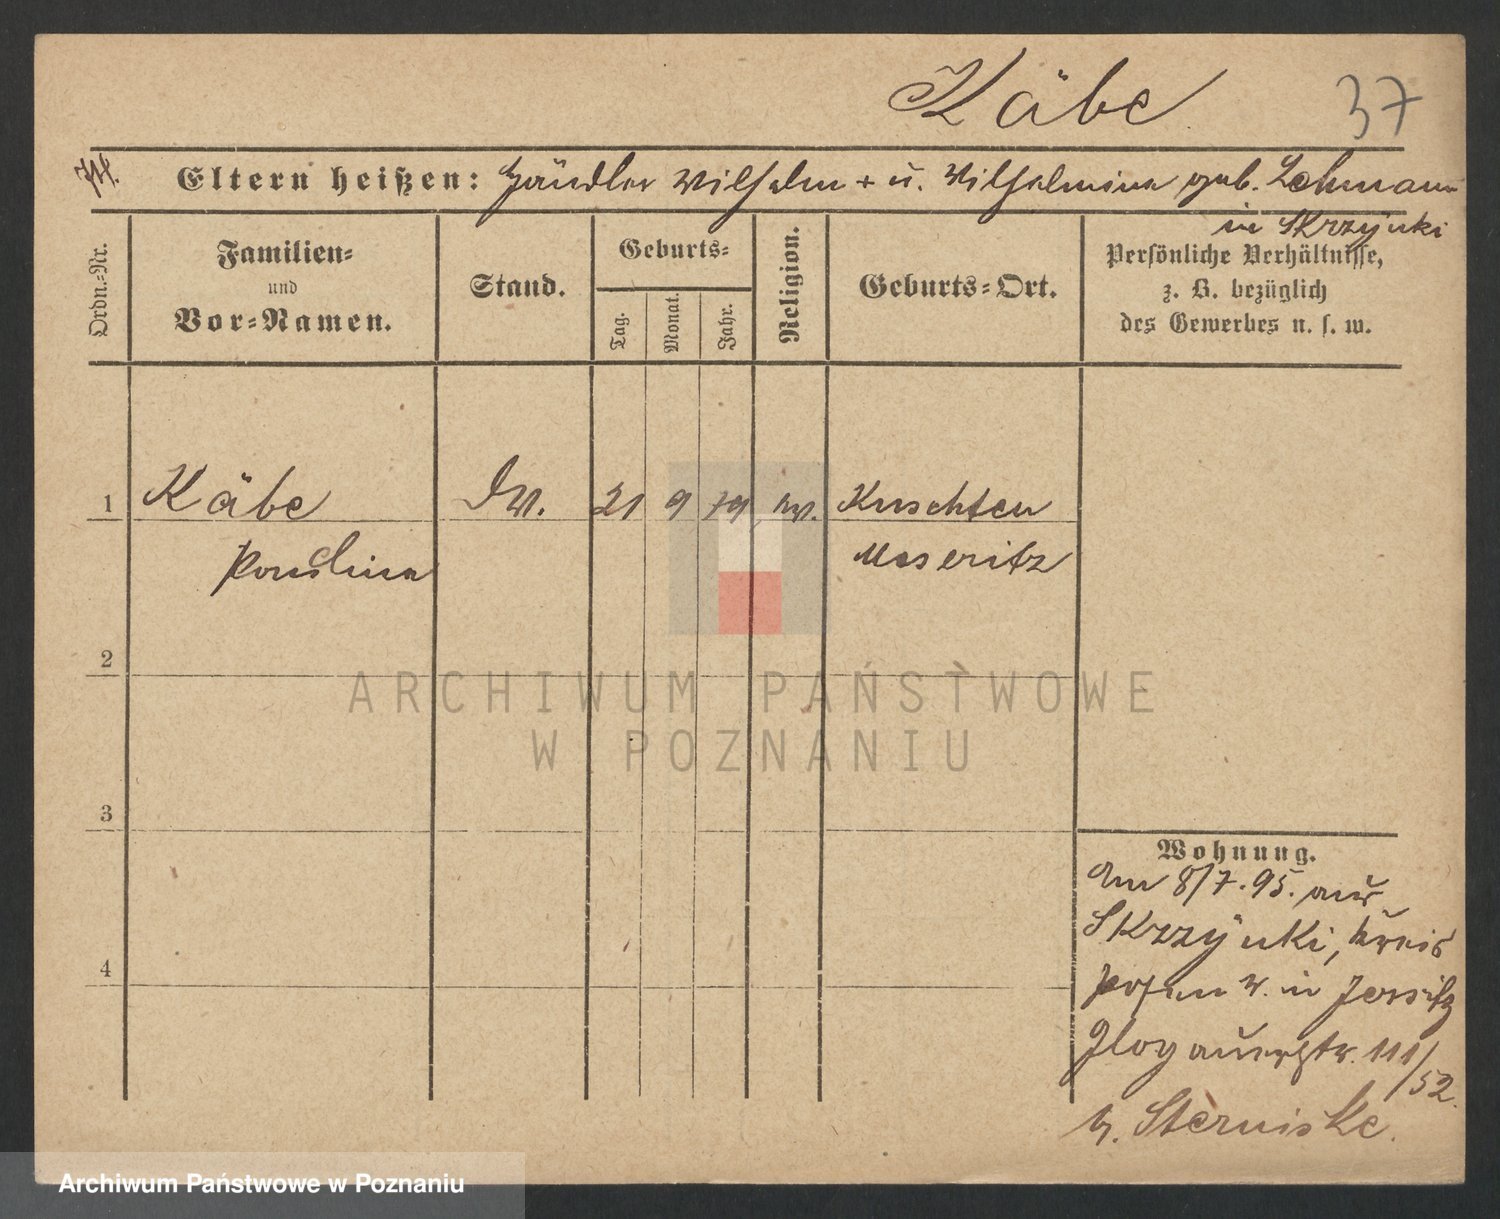 Käbe 37
Eltern heißen: Händler Wilhelm + u. Wilhelmine geb. Lehmann
in Skrzynki
Ordn.-Nr.
Familien-
und
Vor-Namen.
Stand.
Geburts-
Tag.
Monat.
Jahr.
Religion.
Geburts-Ort.
Persönliche Verhältnisse,
z. B. bezüglich
des Gewerbes u. s. w.
1 Käbe 21 9 79 ev. Kuschten
Pauline Meseritz
2
3
4
Wohnung.
Am 8/7.95. aus
Skrzynki, Kreis
Posen n. in Jersitz
Glogauerstr. 111/52.
b. Sterniske.
ARCHIWUM PAŃSTWOWE
W POZNANIU
Archiwum Państwowe w Poznaniu